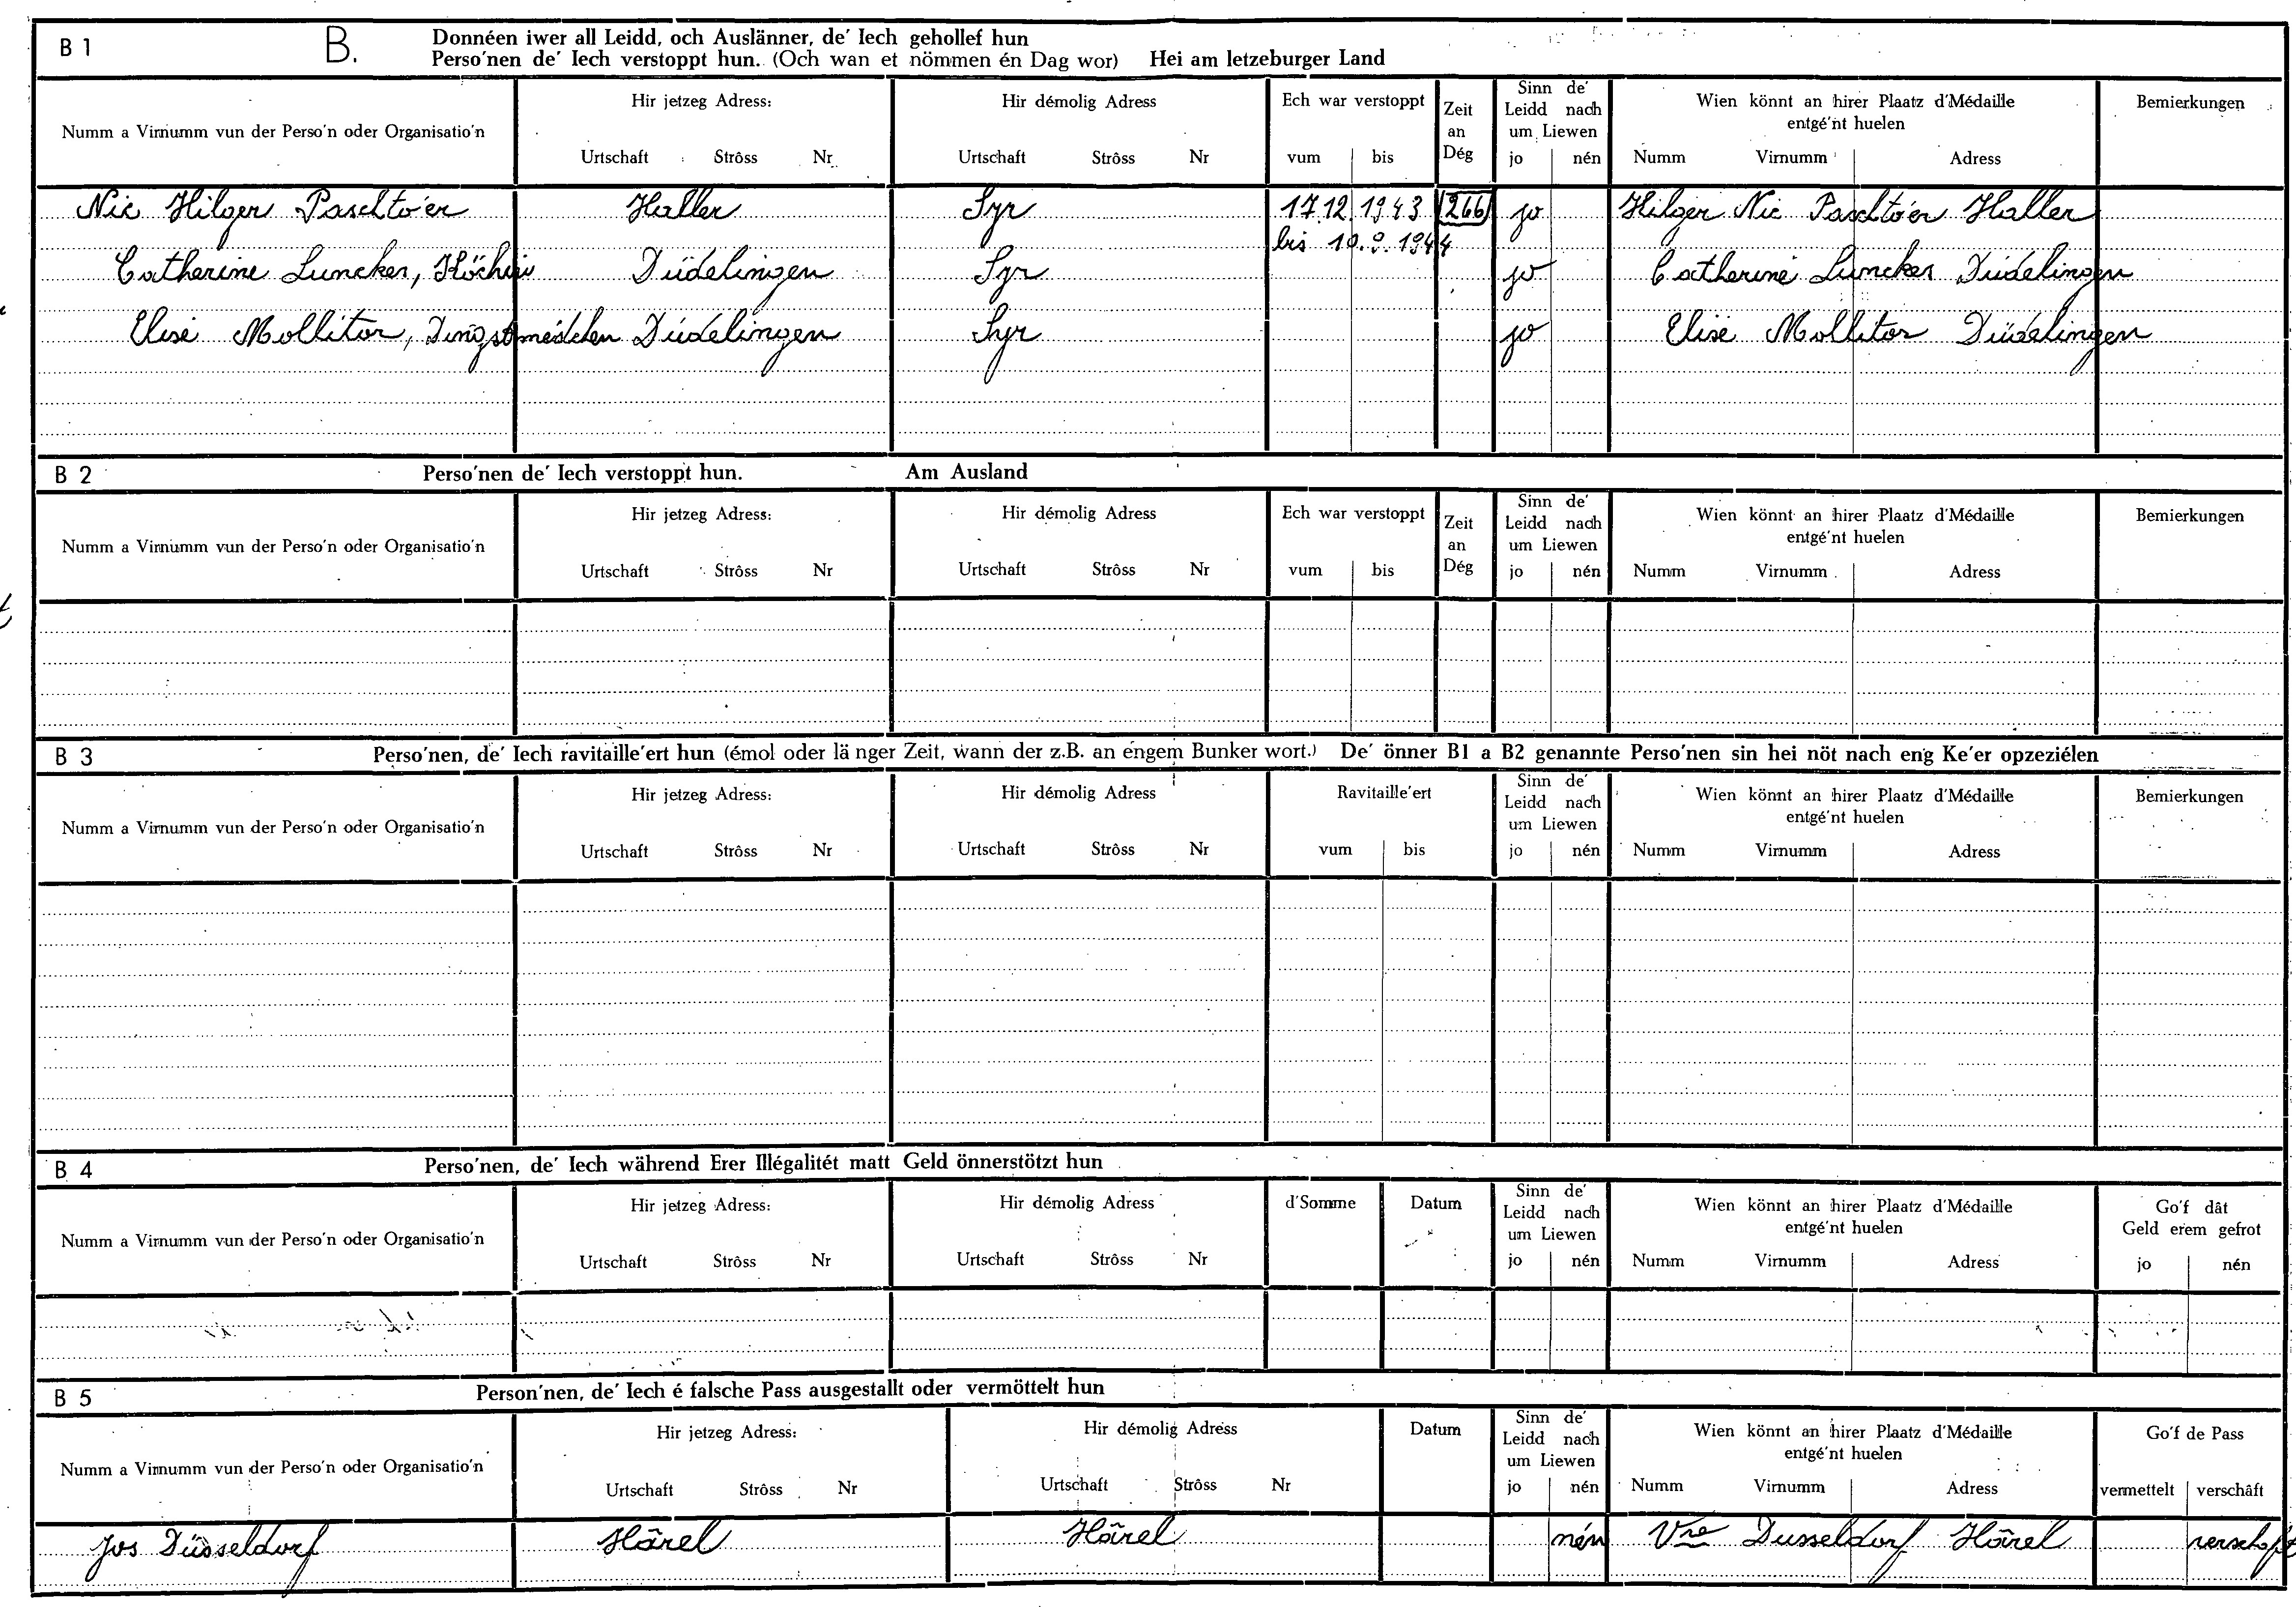 B 1 B. Donnéen iwer all Leidd, och Auslänner, de' Iech gehollef hun
Perso'nen de' Iech verstoppt hun. (Och wan et nömmen én Dag wor) Hei am letzeburger Land
Numm a Virnumm vun der Perso'n oder Organisatio'n
Hir jetzeg Adress:
Urtschaft Strôss Nr
Hir démolig Adress
Urtschaft Strôss Nr
Ech war verstoppt
vum bis
Zeit
an
Dég
Sinn de'
Leidd nach
um Liewen
jo nén
Wien könnt an hirer Plaatz d'Médaille
entgé'nt huelen
Numm Virnumm Adress
Bemierkungen
Nic Hilger Paschto'er Haller Syr 17.12.1943 266 jo Hilger Nic Paschto'er Haller
bis 10.9.1944
Catherine Luncker, Köchin Düdelingen Syr jo Catherine Luncker Düdelingen
Elise Mollitor, Dingstmédchen Düdelingen Syr jo Elise Mollitor Düdelingen
B 2 Perso'nen de' Iech verstoppt hun. Am Ausland
Numm a Virnumm vun der Perso'n oder Organisatio'n
Hir jetzeg Adress:
Urtschaft Strôss Nr
Hir démolig Adress
Urtschaft Strôss Nr
Ech war verstoppt
vum bis
Zeit
an
Dég
Sinn de'
Leidd nach
um Liewen
jo nén
Wien könnt an hirer Plaatz d'Médaille
entgé'nt huelen
Numm Virnumm Adress
Bemierkungen
B 3 Perso'nen, de' Iech ravitaille'ert hun (émol oder länger Zeit, wann der z.B. an engem Bunker wort.) De' önner B1 a B2 genannte Perso'nen sin hei nöt nach eng Ke'er opzeziélen
Numm a Virnumm vun der Perso'n oder Organisatio'n
Hir jetzeg Adress:
Urtschaft Strôss Nr
Hir démolig Adress
Urtschaft Strôss Nr
Ravitaille'ert
vum bis
Sinn de'
Leidd nach
um Liewen
jo nén
Wien könnt an hirer Plaatz d'Médaille
entgé'nt huelen
Numm Virnumm Adress
Bemierkungen
B 4 Perso'nen, de' Iech während Erer Illégalitét matt Geld önnerstötzt hun
Numm a Virnumm vun der Perso'n oder Organisatio'n
Hir jetzeg Adress:
Urtschaft Strôss Nr
Hir démolig Adress
Urtschaft Strôss Nr
d'Somme
Datum
Sinn de'
Leidd nach
um Liewen
jo nén
Wien könnt an hirer Plaatz d'Médaille
entgé'nt huelen
Numm Virnumm Adress
Go'f dât
Geld erem gefrot
jo nén
B 5 Person'nen, de' Iech é falsche Pass ausgestallt oder vermöttelt hun
Numm a Virnumm vun der Perso'n oder Organisatio'n
Hir jetzeg Adress:
Urtschaft Strôss Nr
Hir démolig Adress
Urtschaft Strôss Nr
Datum
Sinn de'
Leidd nach
um Liewen
jo nén
Wien könnt an hirer Plaatz d'Médaille
entgé'nt huelen
Numm Virnumm Adress
Go'f de Pass
vermettelt verschâft
Jos Düsseldorf Hârel Hârel nén Vve Dusseldorf Hârel verschaft